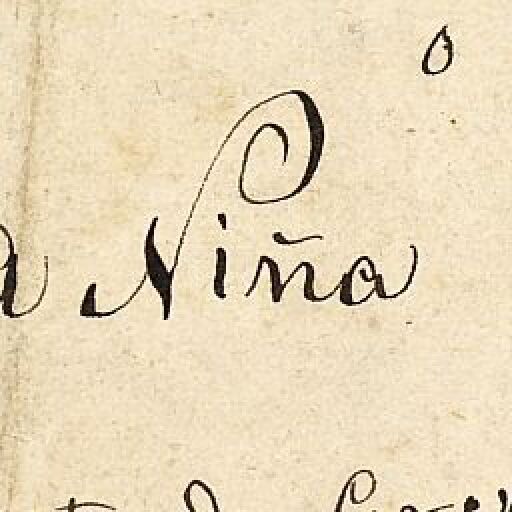 o
a Niña